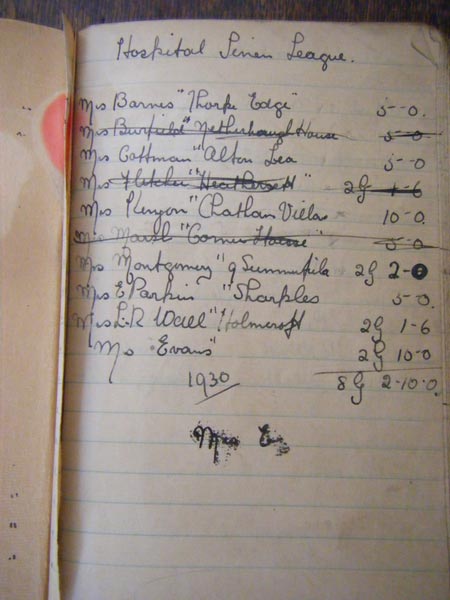 Hospital Linen League.
Mrs Barnes "Thorpe Edge" 5-0.
Mrs Burfield "Netherhaugh House 5-0
Mrs Cottman "Alton Lea 5-0
Mrs Fletcher "Heathersett" 2G 1-6
Mrs Kenyon "Chathan Villas 10-0.
Mrs Marsh "Corner House" 5-0
Mrs Montgomery "9 Summerfila 2G 2-0
Mrs E Parkin "Sharples 5-0.
Mrs L.R Wall "Holmcroft 2G 1-6
Mrs Evans" 2G 10-0
1930 8G 2-10-0.
Mrs